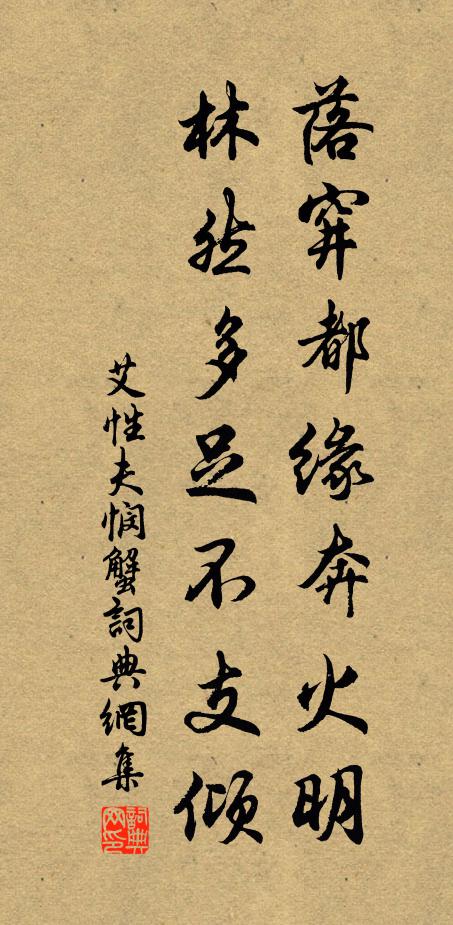 落穽都緣奔火明
林然多足不支傾
艾性夫憫蟹詞典網集
詞典
网印